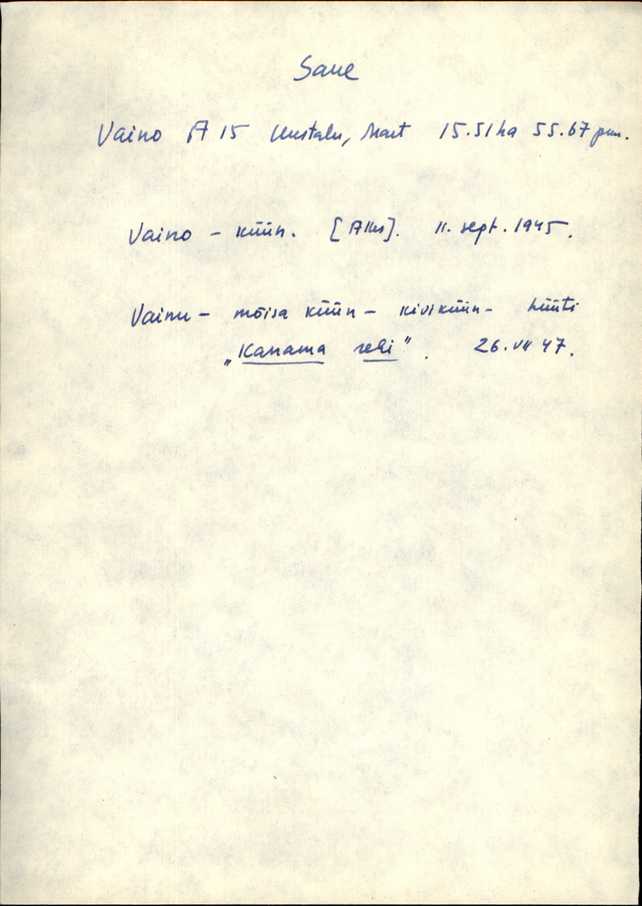 Saue
Vaino A 15 Uustalu, Mart 15.51 ha 55.67 pun.
Vaino – küün. [Akes]. 11. sept. 1945.
Vainu – mõisa küün – kiviküün – hüüti
„Kanama rehi". 26. VII 47.